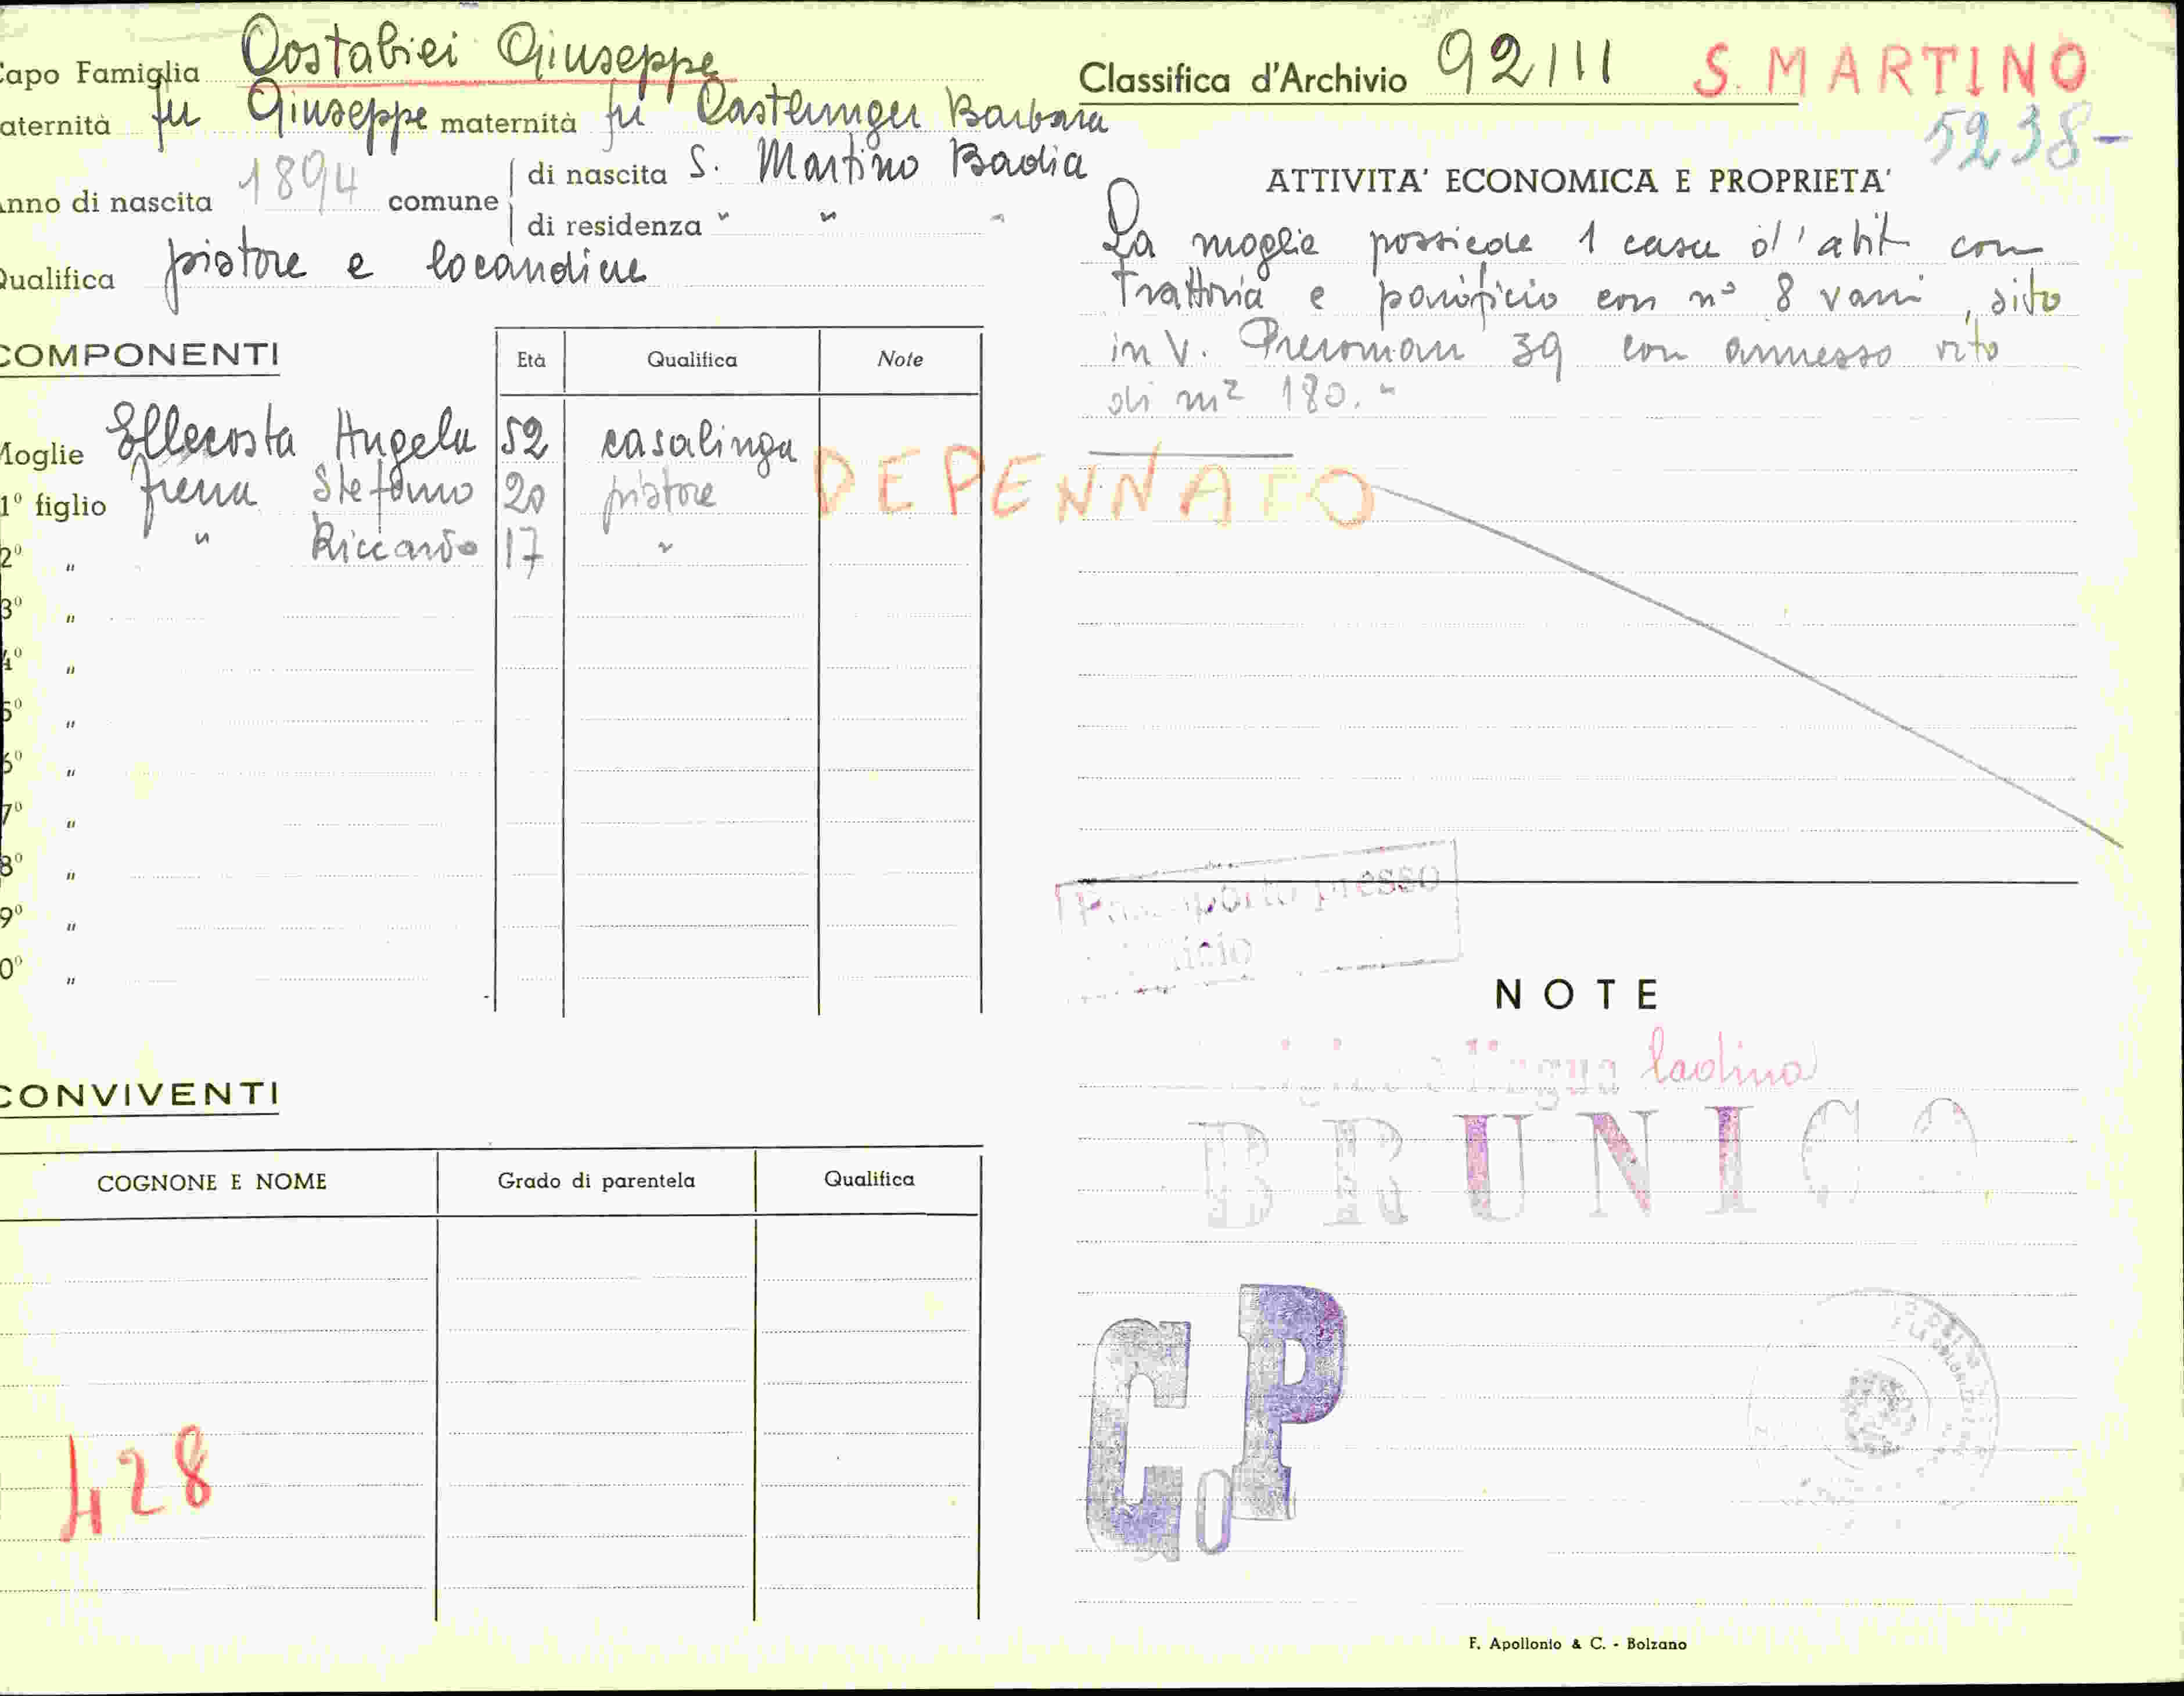 Capo Famiglia Costabiei Giuseppe
aternità fu Giuseppe maternità fu Castlunger Barbara
Anno di nascita 1894 comune di nascita S. Martino Badia
di residenza " " "
Qualifica pistore e locandiere
COMPONENTI Età Qualifica Note
Moglie Ellecosta Angela 52 casalinga
1° figlio Frena Stefano 20 pistore
2° " " Riccardo 17 "
3° "
4° "
5° "
6° "
7° "
8° "
9° "
0° "
DEPENNATO
CONVIVENTI
COGNONE E NOME Grado di parentela Qualifica
428
Classifica d'Archivio 92111 S. MARTINO
5238-
ATTIVITA' ECONOMICA E PROPRIETA'
La moglie possiede 1 casa d'abit con
trattoria e panificio con n° 8 vani, sito
in V. Preroman 39 con annesso
di m² 180."
presso
NOTE
lingua ladina
BRUNICO
C.P
F. Apollonio & C. - Bolzano